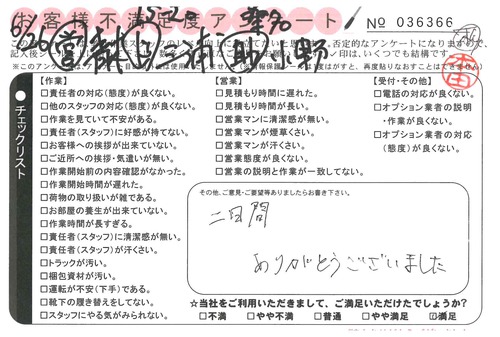 お客様不満足度アンケート
No 036366
チェックリスト
【作業】
□責任者の対応(態度)が良くない。
□他のスタッフの対応(態度)が良くない。
□作業を見ていて不安がある。
□責任者(スタッフ)に好感が持てない。
□お客様への挨拶が出来ていない。
□ご近所への挨拶・気遣いが無い。
□作業開始前の内容確認がなかった。
□作業開始時間が遅れた。
□荷物の取り扱いが雑である。
□お部屋の養生が出来ていない。
□作業時間が長すぎる。
□責任者(スタッフ)に清潔感が無い。
□責任者(スタッフ)が汗くさい。
□トラックが汚い。
□梱包資材が汚い。
□運転が不安(下手)である。
□靴下の履き替えをしてない。
□スタッフにやる気がみられない。
【営業】
□見積もり時間に遅れた。
□見積もり時間が長い。
□営業マンに清潔感が無い。
□営業マンが煙草くさい。
□営業マンが汗くさい。
□営業態度が良くない。
□営業の説明と作業が一致してない。
【受付・その他】
□電話の対応が良くない。
□オプション業者の説明
・作業が良くない。
□オプション業者の対応
(態度)が良くない。
その他、ご意見・ご要望等ありましたらお書き下さい。
二日間
ありがとうございました
☆当社をご利用いただきまして、ご満足いただけたでしょうか?
□不満 □やや不満 □普通 □やや満足 ☑満足